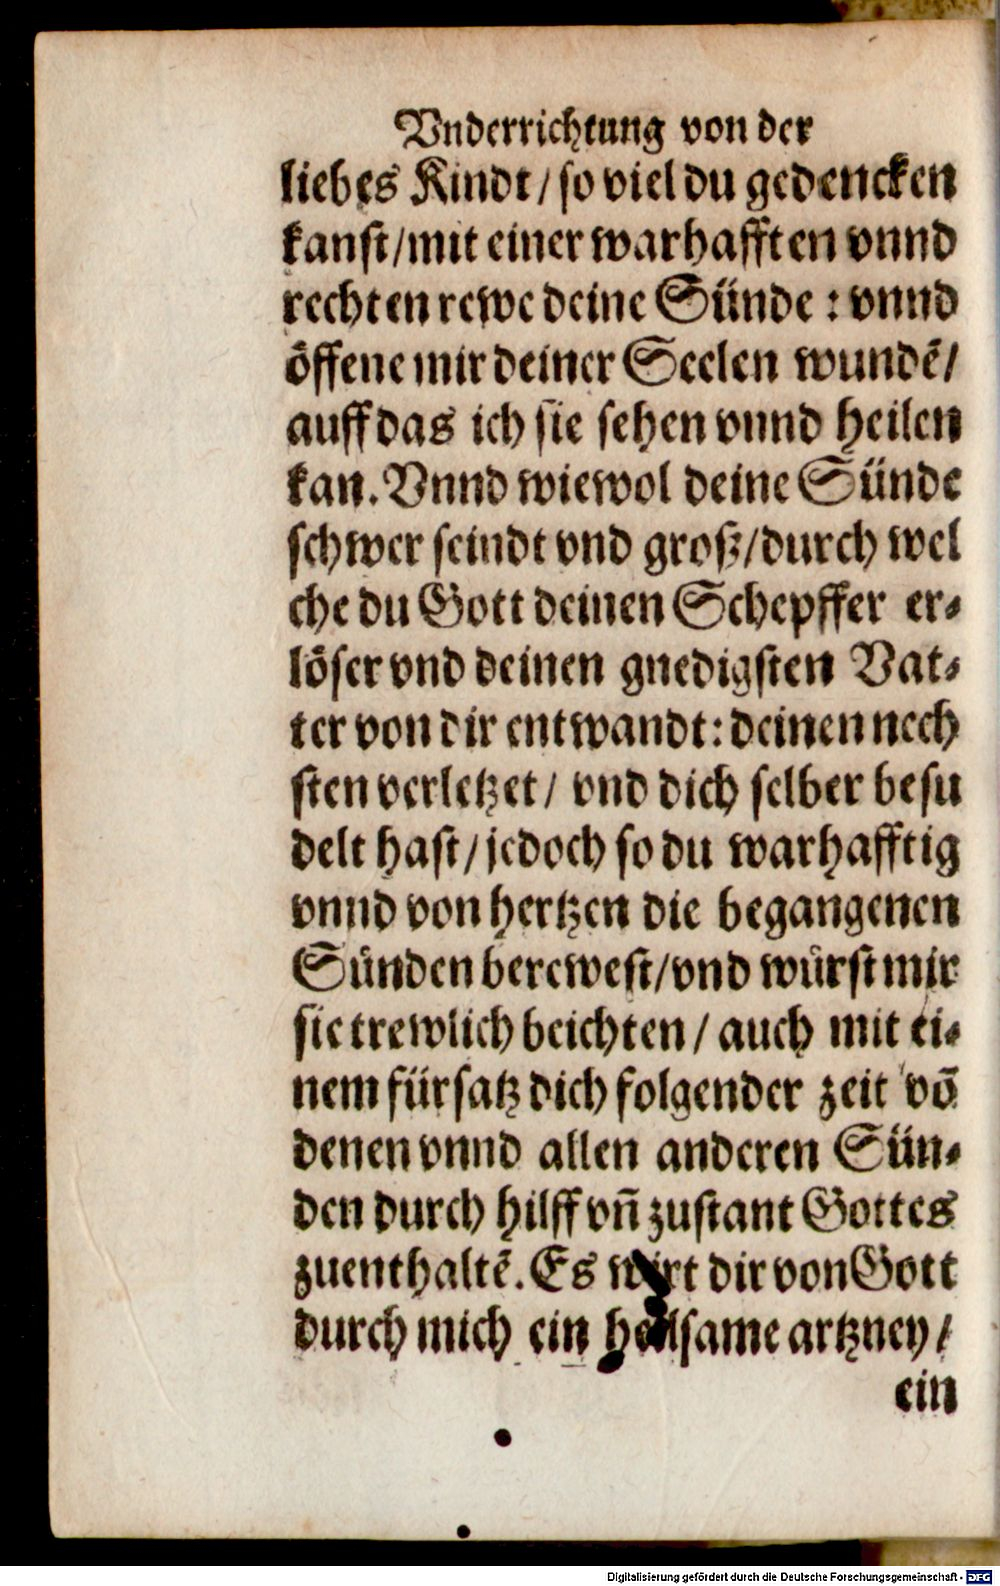 Vnderrichtung von der
liebes Kindt / so viel du gedencken
kanst / mit einer warhafften vnnd
rechten rewe deine Sünde : vnnd
öffene mir deiner Seelen wundẽ /
auff das ich sie sehen vnnd heilen
kan. Vnnd wiewol deine Sünde
schwer seindt vnd groß / durch wel
che du Gott deinen Schepffer er⸗
löser vnd deinen gnedigsten Vat⸗
ter von dir entwandt : deinen nech
sten verletzet / vnd dich selber besu
delt hast / jedoch so du warhafftig
vnnd von hertzen die begangenen
Sünden berewest / vnd würst mir
sie trewlich beichten / auch mit ei⸗
nem fürsatz dich folgender zeit võ
denen vnnd allen anderen Sün⸗
den durch hilff vñ zustant Gottes
zuenthaltẽ. Es wirt dir von Gott
durch mich ein heilsame artzney /
ein
Digitalisierung gefördert durch die Deutsche Forschungsgemeinschaft - DFG